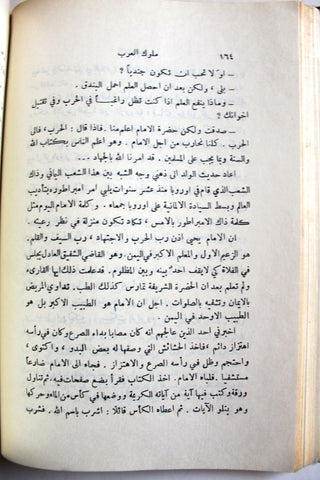 ١٦٤ ملوك العرب
– او لا تحب ان تكون جندياً ؟
– بلى ، ولكن بعد ان احصل العلم احمل البندق .
– وماذا ينفع العلم اذا كنت تظل راغباً في الحرب وفي تقتيل
اخوانك ؟
– صدقت ولكن حضرة الامام اعلم منا . فاذا قال : الحرب ، فالى
الحرب . كلنا نحارب من اجل الامام . وهو اعلم الناس بكتاب الله
والسنة وبما يجب على المسلمين . قد امرنا الله بالجهاد ...
اعاد حديث الولد الى ذهني وجه الشبه بين هذا الشعب اليماني وذاك
الشعب الذي قام في اوروبا منذ عشر سنوات يلبي امر امبراطوره بتأديب
العالم وبسط السيادة الالمانية على اوروبا جمعاء . وكلمة الامام اليوم مثل
كلمة ذاك الامبراطور بالامس ، تكاد تكون منزلة في نظر رعيته .
ان الامام يحيى اذن رب الحرب والاجتهاد ، رب السيف والقلم .
هو الزعيم الاول والمعلم الاكبر في اليمن . وهو القاضي الشفيق العادل يجلس
في الفلاة كي لا يقف احد بينه وبين المظلوم . فدعت ذلك ايها القارىء
ولم تعلم بعد ان الحضرة الشريفة تمارس كذلك الطب . فتداوي المريض
بالايمان وتشفيه بالصلوات . اجل ان الامام هو الطبيب الاكبر بل هو
الطبيب الاوحد في اليمن .
اخبرني احد الذين عالجهم انه كان مصاباً بداء الصرع وكان في رأسه
اهتزاز دائم ، فاخذ الحشائش التي وصفها له بعض البدو ، واكتوى ،
واحتجم وظل في رأسه الصرع والاهتزاز . فجاء الى الامام ضارعاً
مستشفياً . فلباه الامام . اخذ الكتاب فقرأ بضع صفحات فيه . ثم تناول
ورقة وكتب فيها آية من آياته الكريمة ووضعها في كأس من الماء وحركها
وهو يتلو الآيات . ثم اعطاه الكأس قائلاً : اشرب باسم الله . فشرب